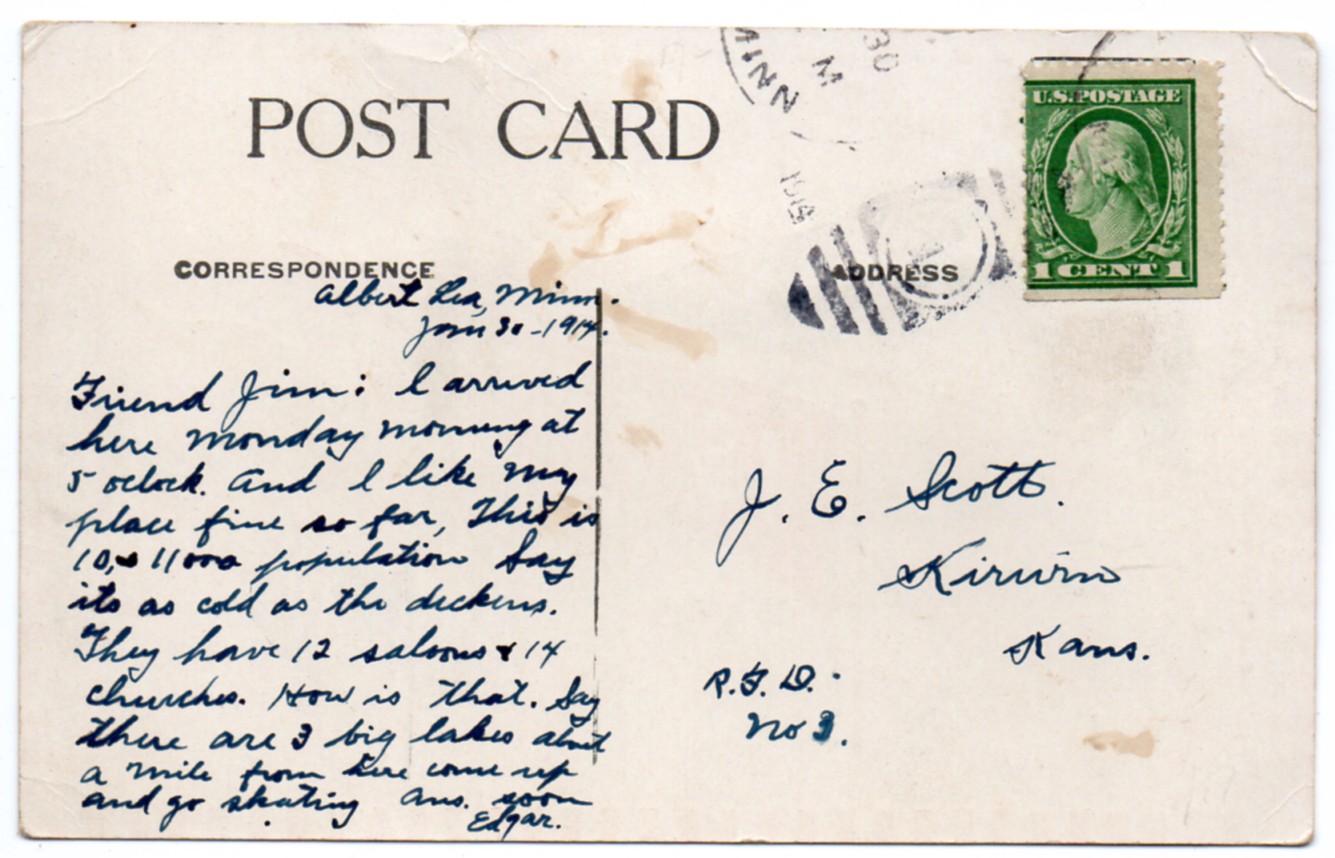 POST CARD
MINN
30
M
1914
U.S. POSTAGE
1 CENT 1
CORRESPONDENCE
ADDRESS
Albert Lea, Minn.
Jan 30 - 1914.
Friend Jim: I arrived
here Monday morning at
5 oclock. And I like my
place fine so far, This is
10, 11000 population Say
its as cold as the dickens.
They have 12 saloons & 14
churches. How is that. Say
there are 3 big lakes about
a mile from here come up
and go skating ans. soon
Edgar.
J. E. Scott.
Kirwin
Kans.
R.F.D.
No 3.